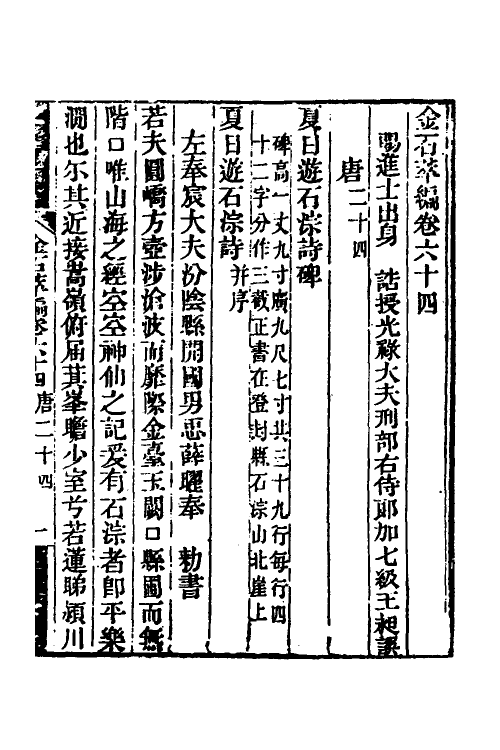 金石萃編卷六十四
賜進士出身　誥授光祿大夫刑部右侍郎加七級王昶譔
唐二十四
夏日遊石淙詩碑
碑高一丈九寸廣九尺七寸共三十九行每行四
十二字分作三截正書在登封縣石淙山北崖上
夏日遊石淙詩并序
左奉宸大夫汾陰縣開國男臣薛曜奉　勑書
若夫圓嶠方壺涉滄波而靡際金臺玉闕口縣圃而無
階口唯山海之經空空神仙之記爰有石淙者卽平樂
澗也尓其近接嵩嶺俯屆萁峯瞻少室兮若蓮睇潁川
金石萃編卷六十四　唐二十四　一